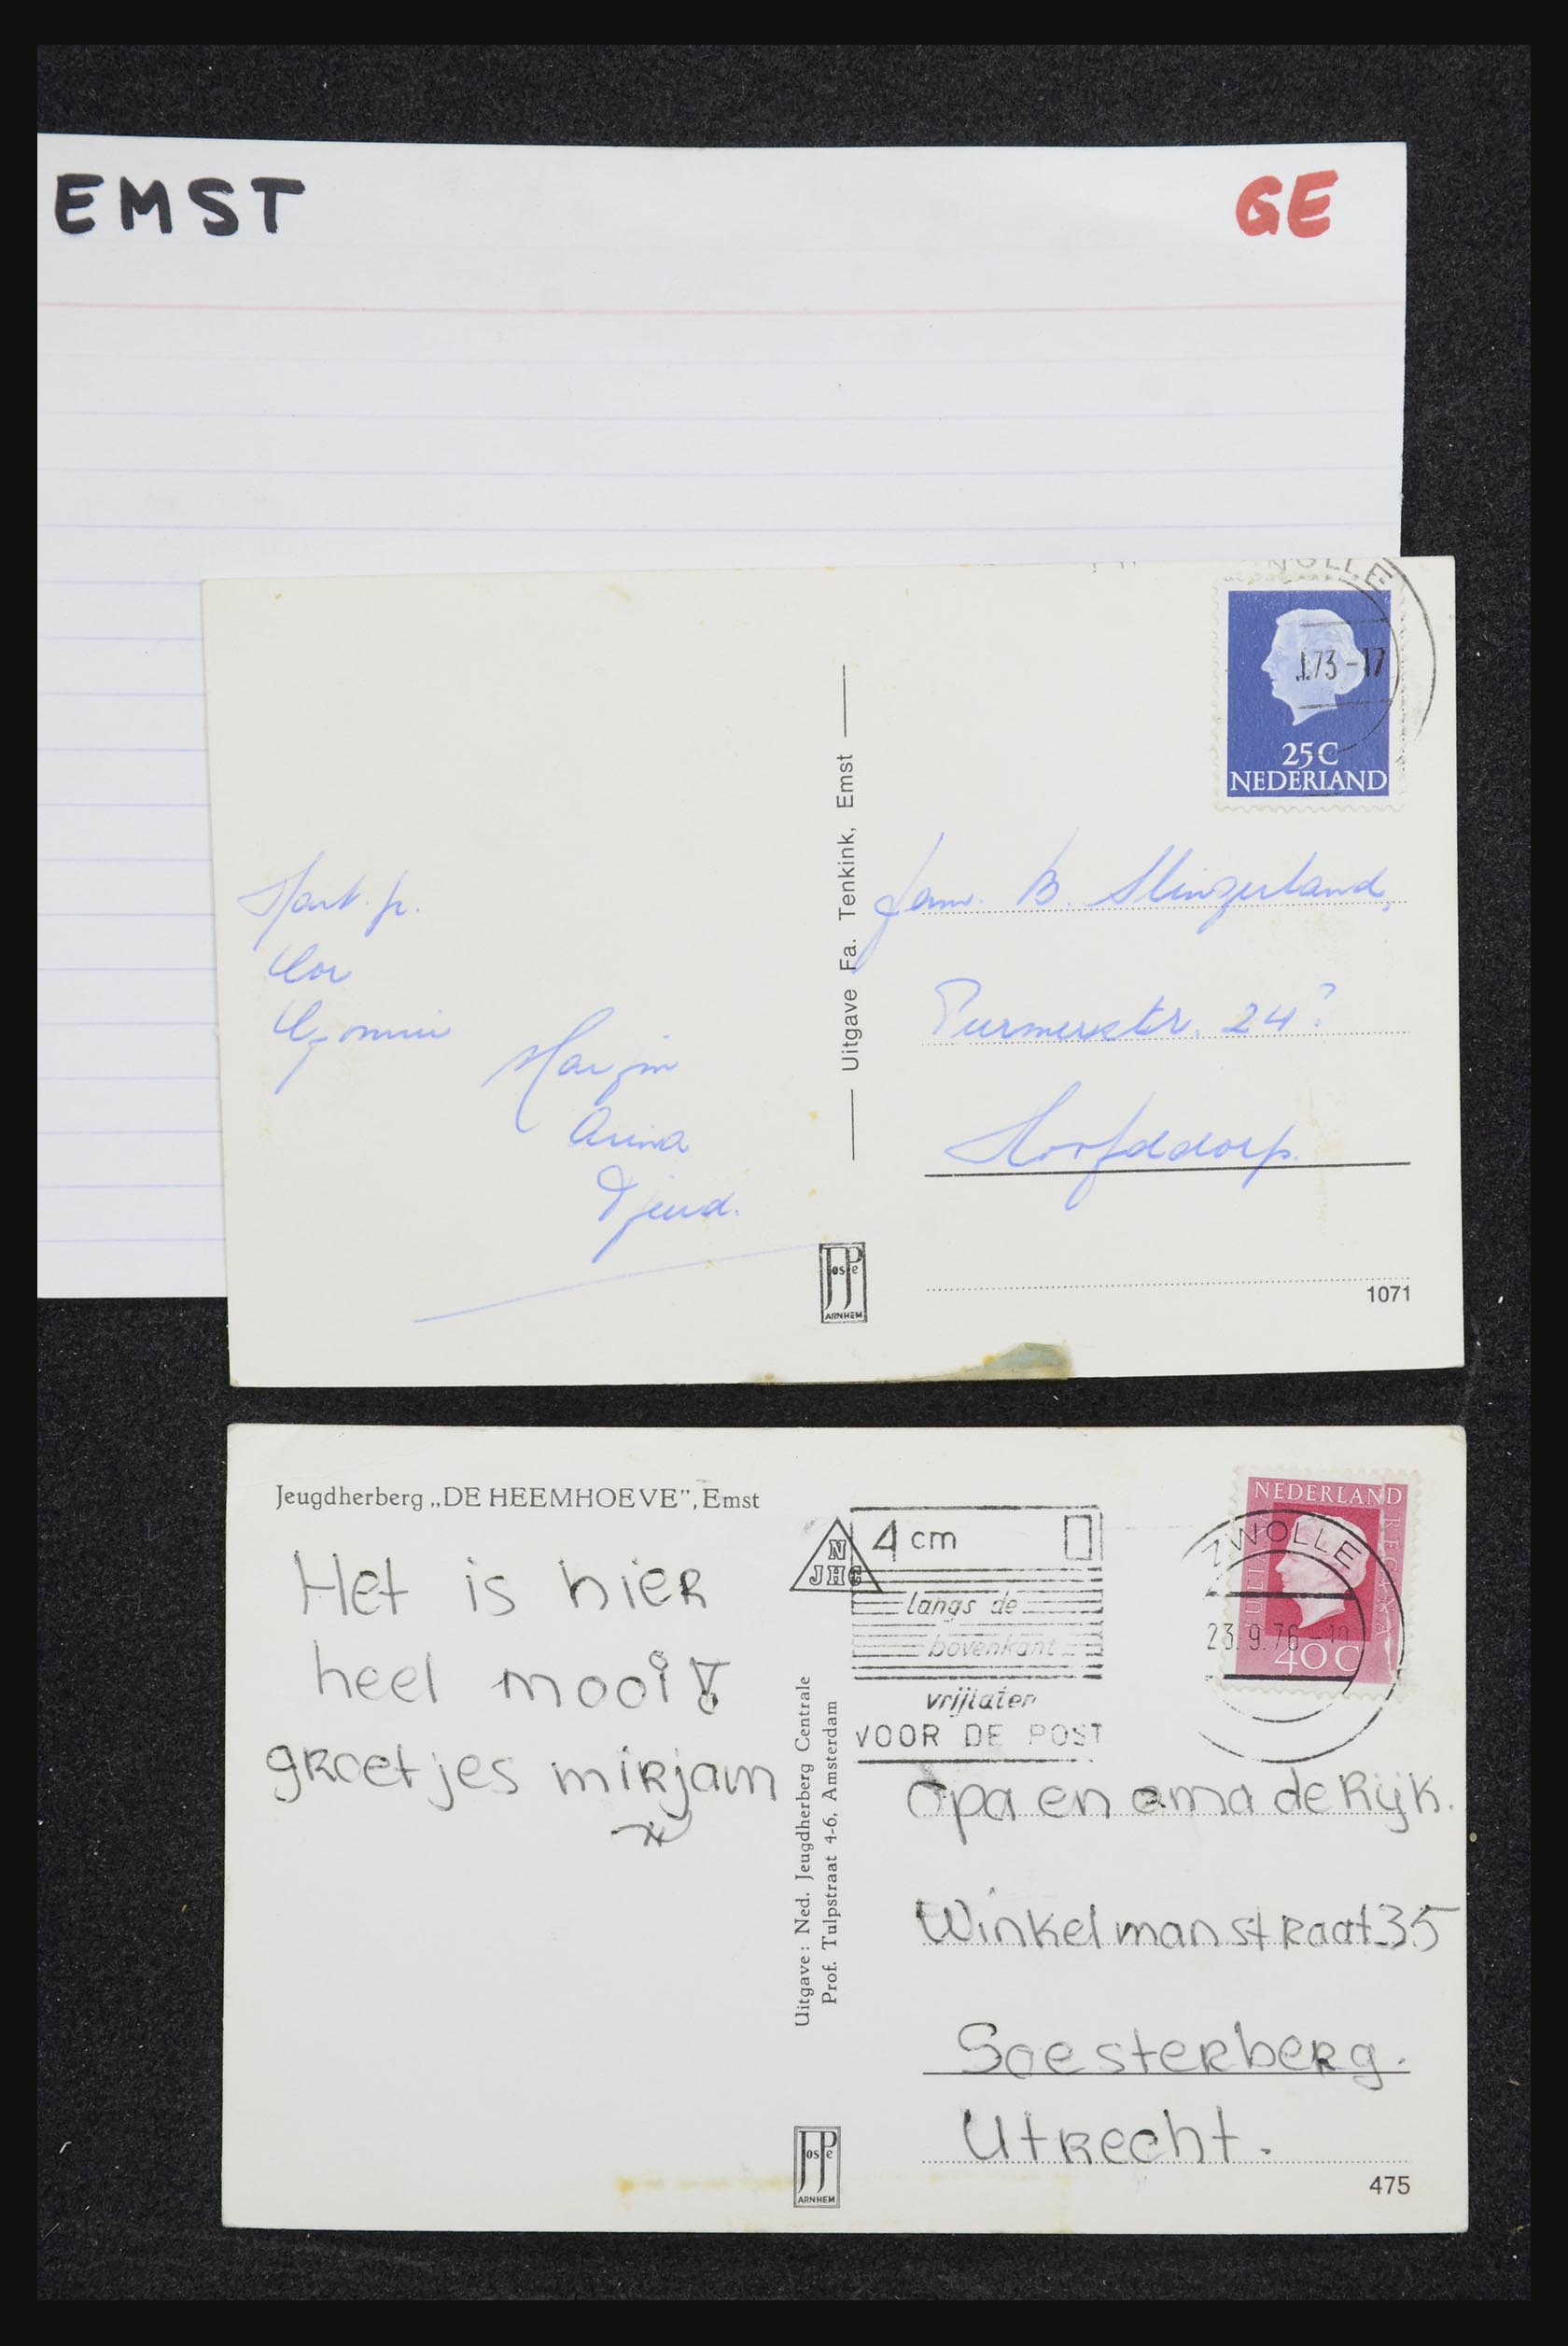 EMST
GE
NOLLE
.73-17
25C
NEDERLAND
Hart. gr.
Cor
Marjin
Arina
Uitgave Fa. Tenkink, Emst
Fam. B. Slingerland,
Purmerstr. 24?
Hoofddorp.
JosPe
ARNHEM
1071
Jeugdherberg „DE HEEMHOEVE”, Emst
NJHC
4 cm
langs de
bovenkant
vrijlaten
VOOR DE POST
NEDERLAND
JULIANA REGINA
40C
ZWOLLE
23.9.76-19
Het is hier
heel mooi!
groetjes mirjam
Uitgave: Ned. Jeugdherberg Centrale
Prof. Tulpstraat 4-6, Amsterdam
opa en oma de Rijk.
Winkelmanstraat 35
Soesterberg.
Utrecht.
JosPe
ARNHEM
475